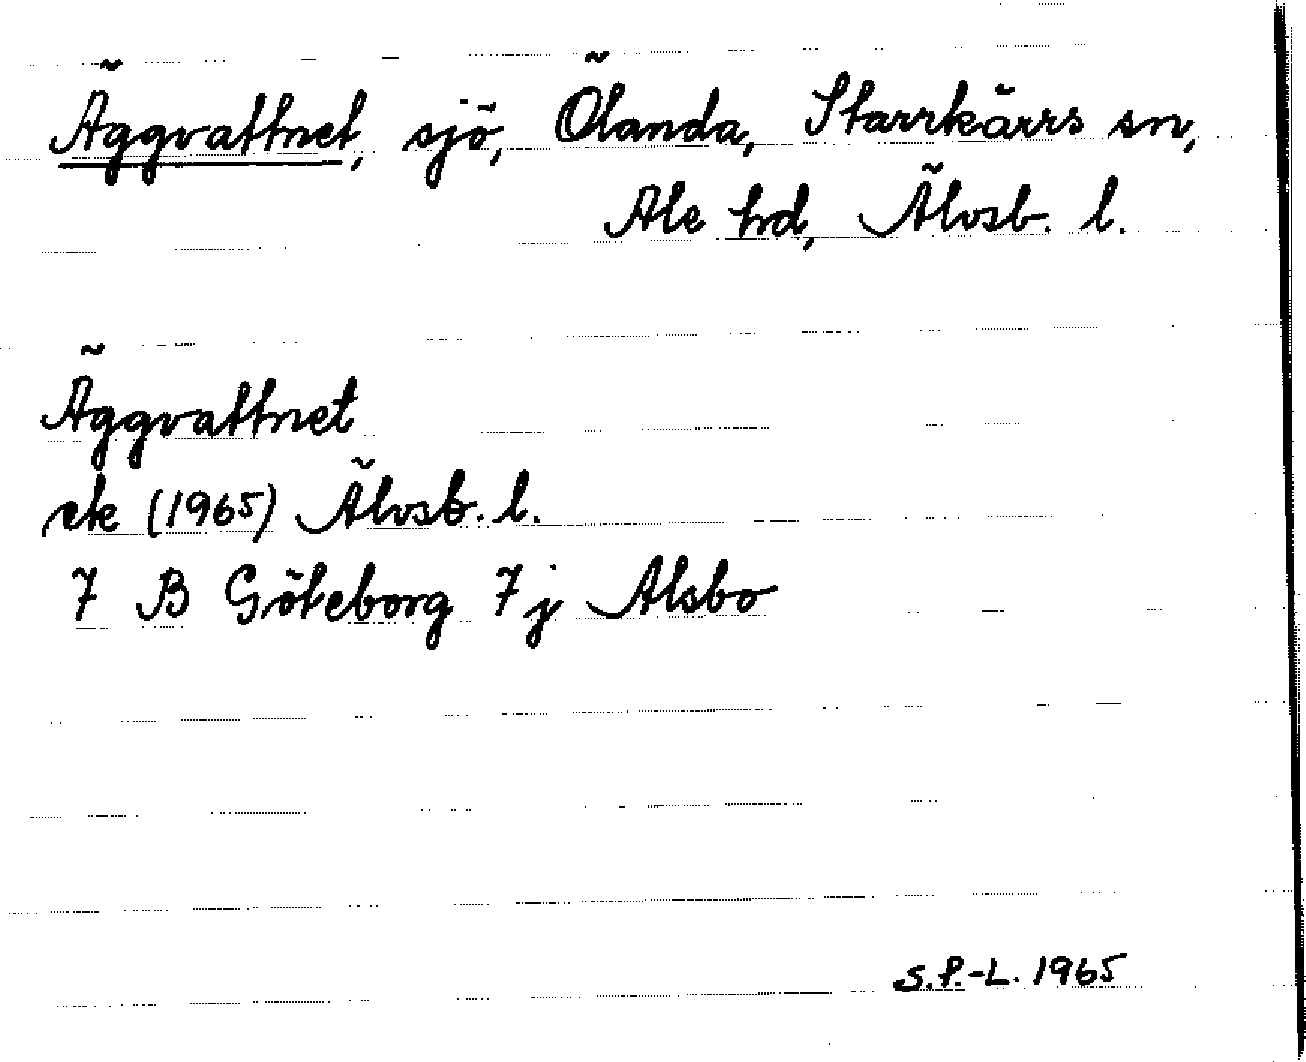 Äggvattnet, sjö, Ölanda, Starrkärrs sn,
Ale hd, Älvsb. l.
Äggvattnet
ek (1965) Älvsb. l.
7 B Göteborg 7 j Alsbo
S.P.-L. 1965